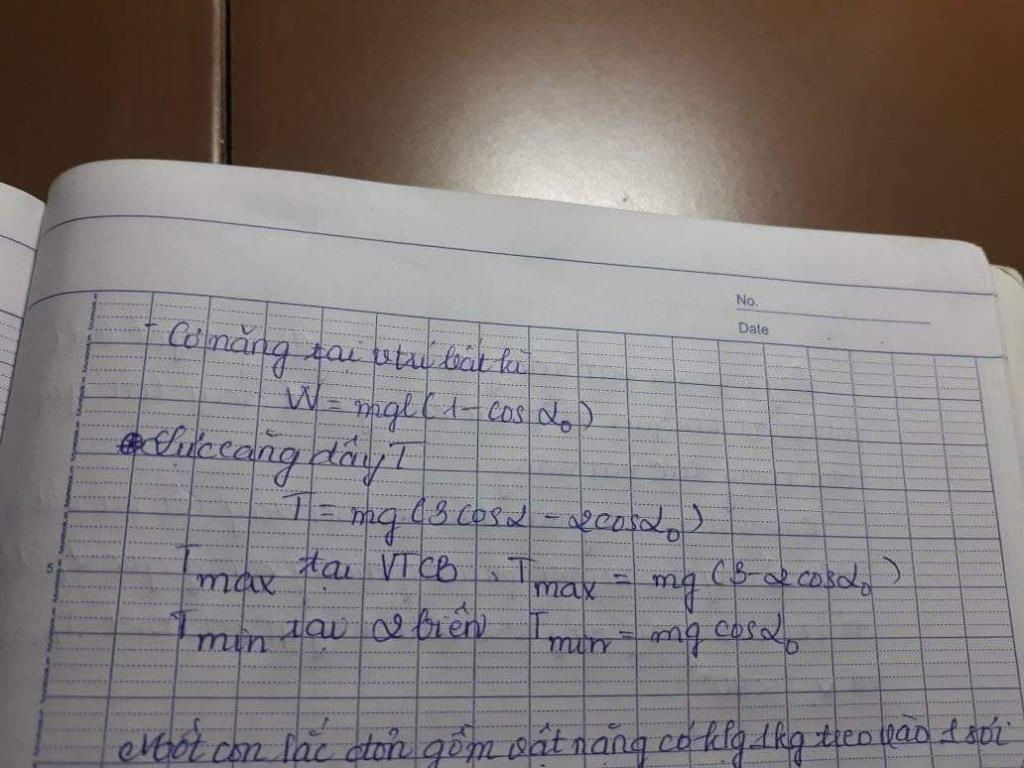 No.
Date
- Cơ năng tại vtrí bất kì
W = mgl(1 - cos α₀)
Lực căng dây T
T = mg(3cosα - 2cosα₀)
5
Tmax tại VTCB, Tmax = mg(3-2cosα₀)
Tmin tại 2 biên Tmin = mg cosα₀
Một con lắc đơn gồm vật nặng có klg 1kg treo vào 1 sợi